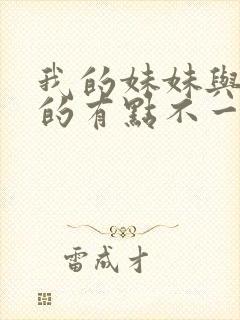 我的妹妹與
的有點不一
雷成才